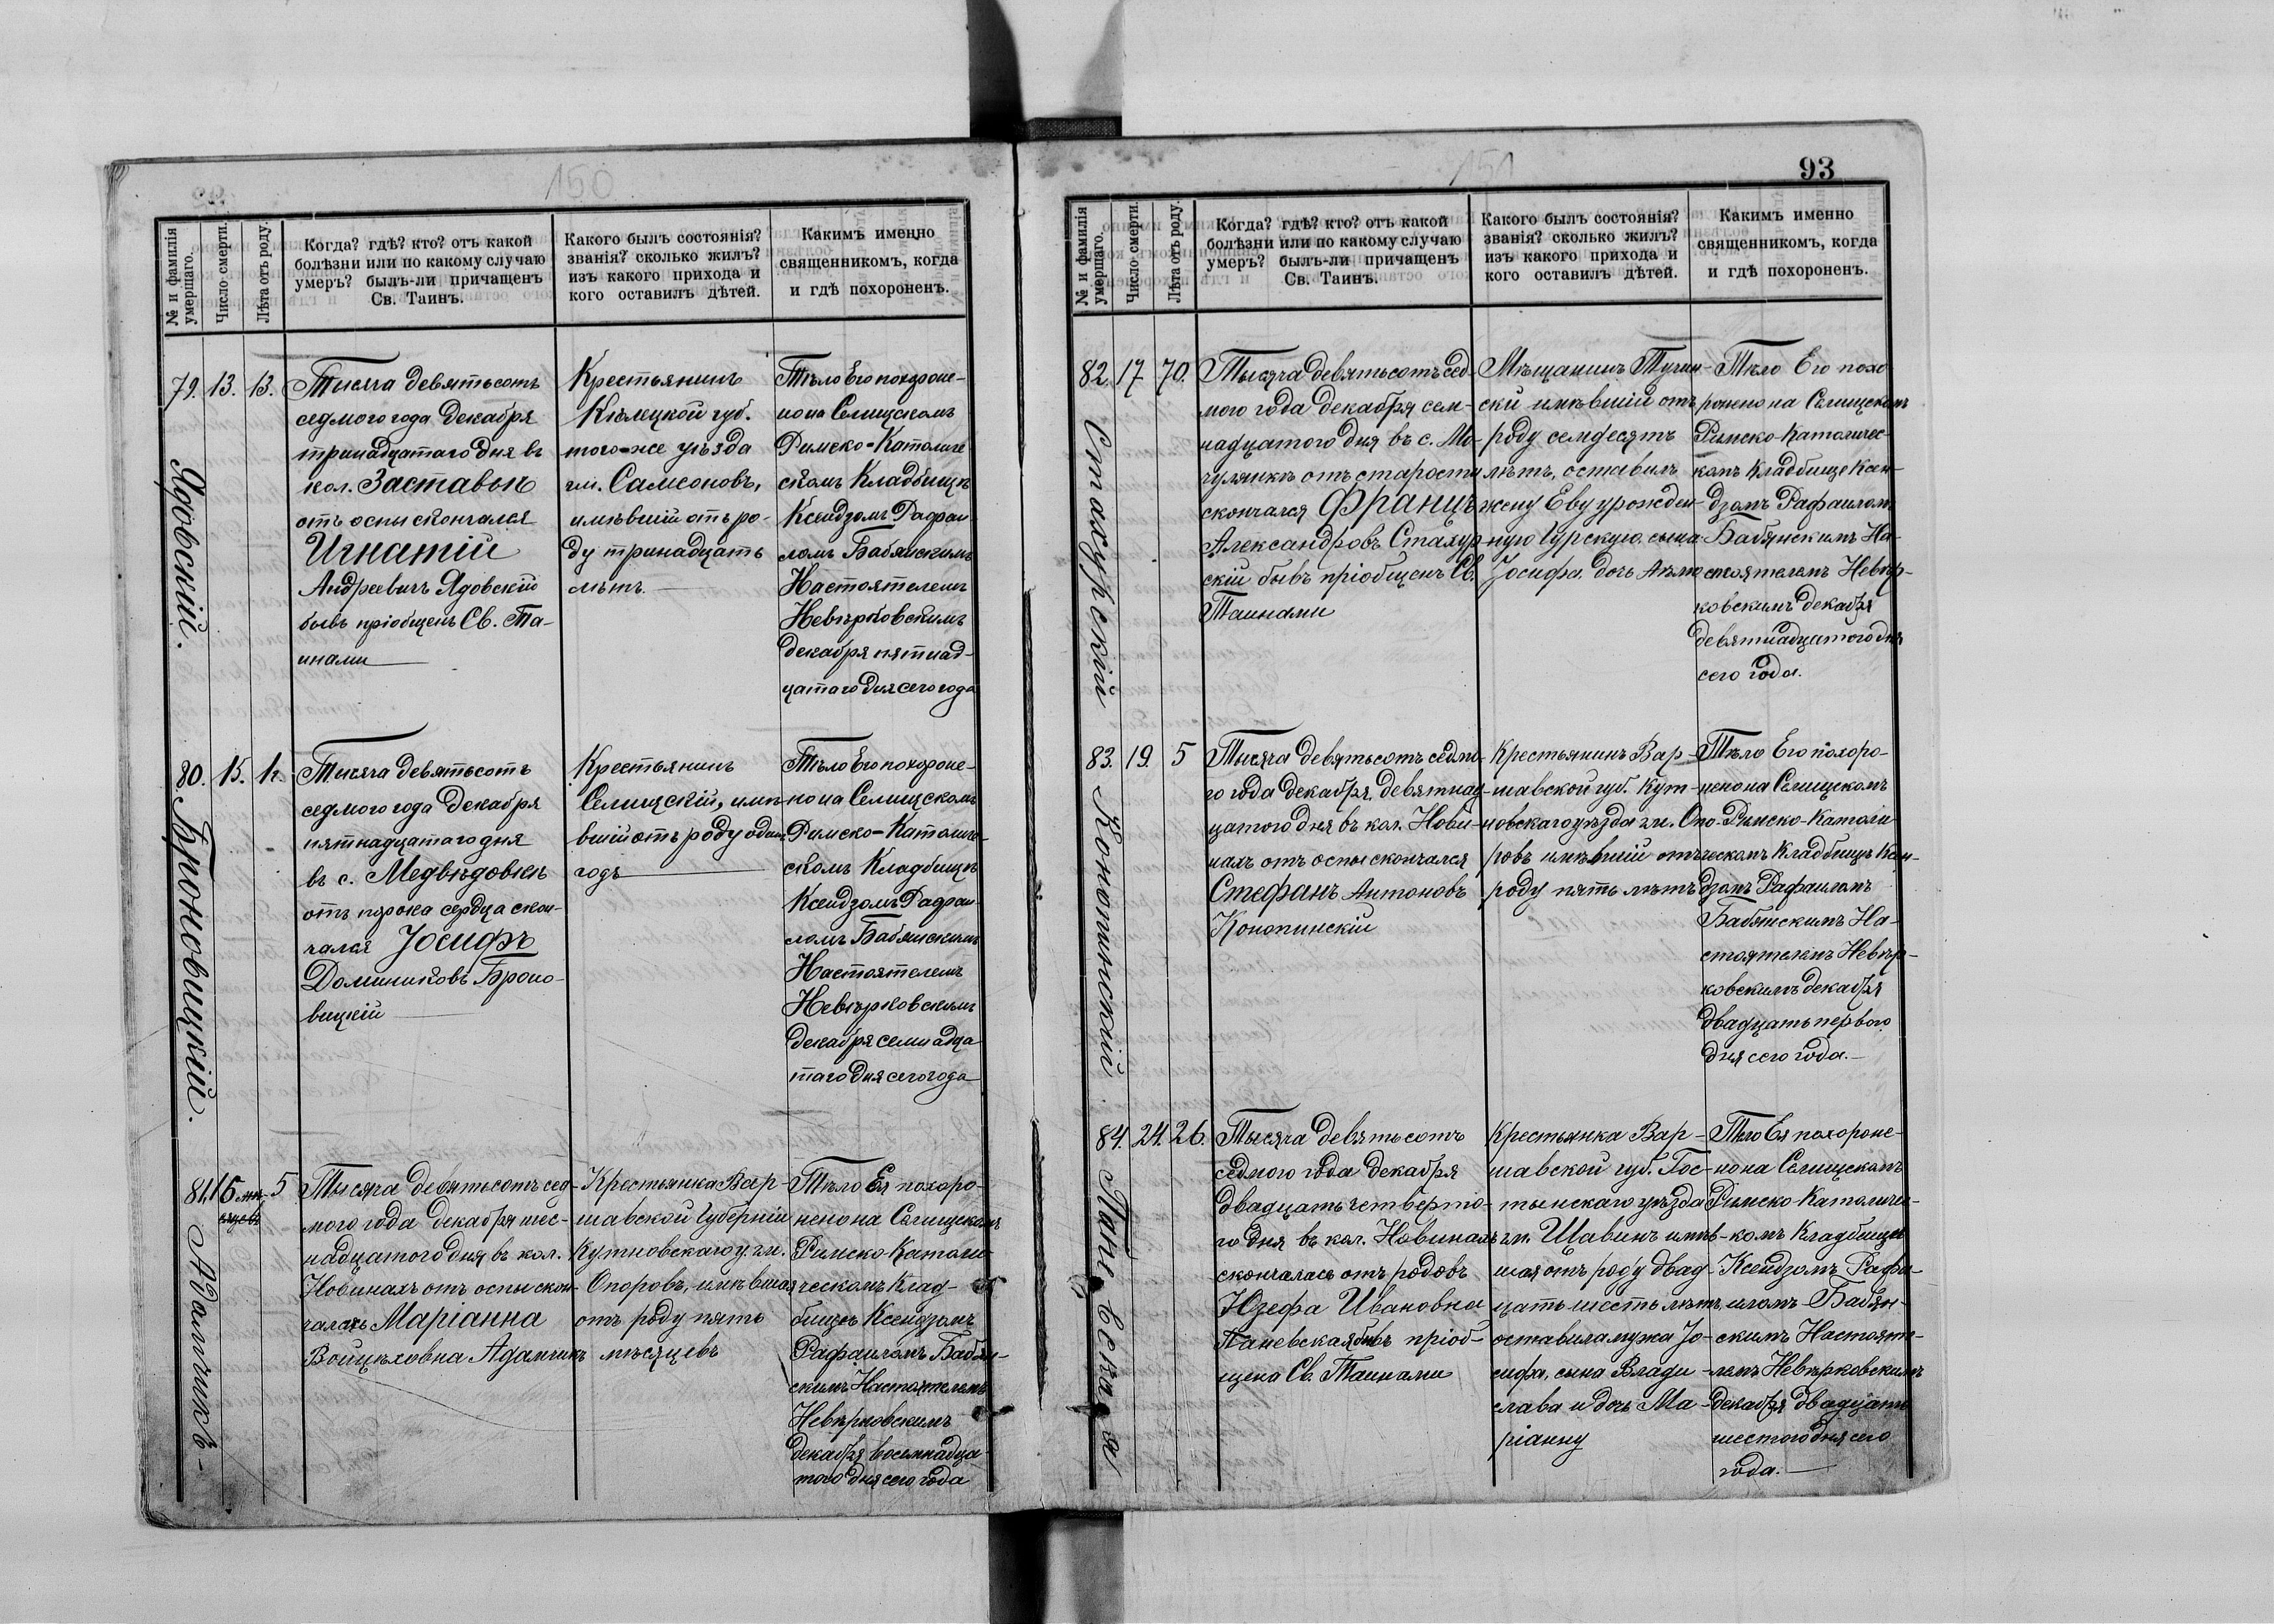 150
№ и фамилія умершаго.
Число смерти.
Лѣта отъ роду.
Когда? гдѣ? кто? отъ какой
болѣзни или по какому случаю
умеръ? былъ-ли причащенъ
Св. Таинъ.
Какого былъ состоянія?
званія? сколько жилъ?
изъ какого прихода и
кого оставилъ дѣтей.
Какимъ именно
священникомъ, когда
и гдѣ похороненъ.
79. 13. 13.
Ядовскій.
Тысяча девятьсотъ
седмого года Декабря
тринадцатаго дня въ
кол. Заставью
отъ оспы скончался
Игнатій
Андреевичъ Ядовскій
бывъ пріобщенъ Св. Та-
инами
Крестьянинъ
Кѣлецкой губ.
того-же уѣзда
гм. Самсоновъ,
имѣвшій отъ ро-
ду тринадцать
лѣтъ.
Тѣло Его похороне-
но на Селищскомъ
Римско-Католиче
скомъ Кладбищѣ
Ксендзомъ Рафаи-
ломъ Бабянскимъ
Настоятелемъ
Невѣрковскимъ
декабря пятнад-
цатаго дня сего года
80. 15. 1г.
Броновицкій.
Тысяча девятьсотъ
седмого года Декабря
пятнадцатаго дня
въ с. Медвѣдовкѣ
отъ порока сердца скон-
чался Іосифъ
Доминиковъ Броно-
вицкій
Крестьянинъ
Селищскій, имѣ-
вшій отъ роду одинъ
годъ
Тѣло Его похороне-
но на Селищскомъ
Римско-Католиче-
скомъ Кладбищѣ
Ксендзомъ Рафаи-
ломъ Бабянскимъ
Настоятелемъ
Невѣрковскимъ
декабря семнадца
таго дня сего года
81. 16. мѣ-
сяцевъ 5
Адамчикъ -
Тысяча девятьсотъ сед-
мого года декабря шес-
надцатого дня въ кол.
Новинахъ отъ оспы скон-
чалась Маріанна
Войцѣховна Адамчикъ
Крестьянка Вар-
шавской Губерніи
Кутновскаго у. гм.
Опоровъ, имѣвшая
отъ роду пять
мѣсяцевъ
Тѣло Ея похоро-
нено на Селищскомъ
Римско-Католи-
ческомъ Клад-
бищѣ Ксендзомъ
Рафаиломъ Бабян-
скимъ Настоятелемъ
Невѣрковскимъ
декабря восемнадца-
того дня сего года
151
93
№ и фамилія умершаго.
Число смерти.
Лѣта отъ роду.
Когда? гдѣ? кто? отъ какой
болѣзни или по какому случаю
умеръ? былъ-ли причащенъ
Св. Таинъ.
Какого былъ состоянія?
званія? сколько жилъ?
изъ какого прихода и
кого оставилъ дѣтей.
Какимъ именно
священникомъ, когда
и гдѣ похороненъ.
82. 17 70.
Стахурскій
Тысяча девятьсотъ сед-
мого года декабря сем-
надцатого дня въ с. Мо-
чулянкѣ отъ старости
скончался Францъ
Александровъ Стахур-
скій бывъ пріобщенъ Св.
Таинами
Мѣщанинъ Тучин-
скій имѣвшій отъ
роду семдесятъ
лѣтъ, оставилъ
жену Еву урожден-
ную Гурскую, сына
Іосифа, дочь
Тѣло Его похо
ронено на Селищскомъ
Римско-Католичес-
комъ Кладбище Ксен-
дзомъ Рафаиломъ
Бабянскимъ На-
стоятелемъ Невѣр-
ковскимъ декабря
девятнадцатого дня
сего года.
83. 19. 5
Конопинскій
Тысяча девятьсотъ седмо-
го года декабря девятнад-
цатого дня въ кол. Нови-
нахъ отъ оспы скончался
Стефанъ Антоновъ
Конопинскій
Крестьянинъ Вар-
шавской губ. Кут-
новскаго уѣзда гм. Опо-
ровъ имѣвшій отъ
роду пять лѣтъ
Тѣло Его похоро-
нено на Селищскомъ
Римско-Католи
ческомъ Кладбищѣ Ксен-
дзомъ Рафаиломъ
Бабянскимъ На-
стоятелемъ Невѣр-
ковскимъ декабря
двадцать первого
дня сего года.
84. 24. 26.
Паневская
Тысяча девятьсотъ
седмого года декабря
двадцать четверто-
го дня въ кол. Новинахъ
скончалась отъ родовъ
Юзефа Ивановна
Паневская бывъ пріоб-
щена Св. Таинами
Крестьянка Вар-
шавской губ. Гос-
тынскаго уѣзда
гм. Щавинъ имѣв-
шая отъ роду двад-
цать шесть лѣтъ,
оставила мужа Іо-
сифа, сына Влади-
слава и дочь Ма-
ріанну
Тѣло Ея похороне-
но на Селищскомъ
Римско-Католичес-
комъ Кладбищѣ
Ксендзомъ Рафа-
иломъ Бабян-
скимъ Настояте-
лемъ Невѣрковскимъ
декабря двадцать
шестого дня сего
года.